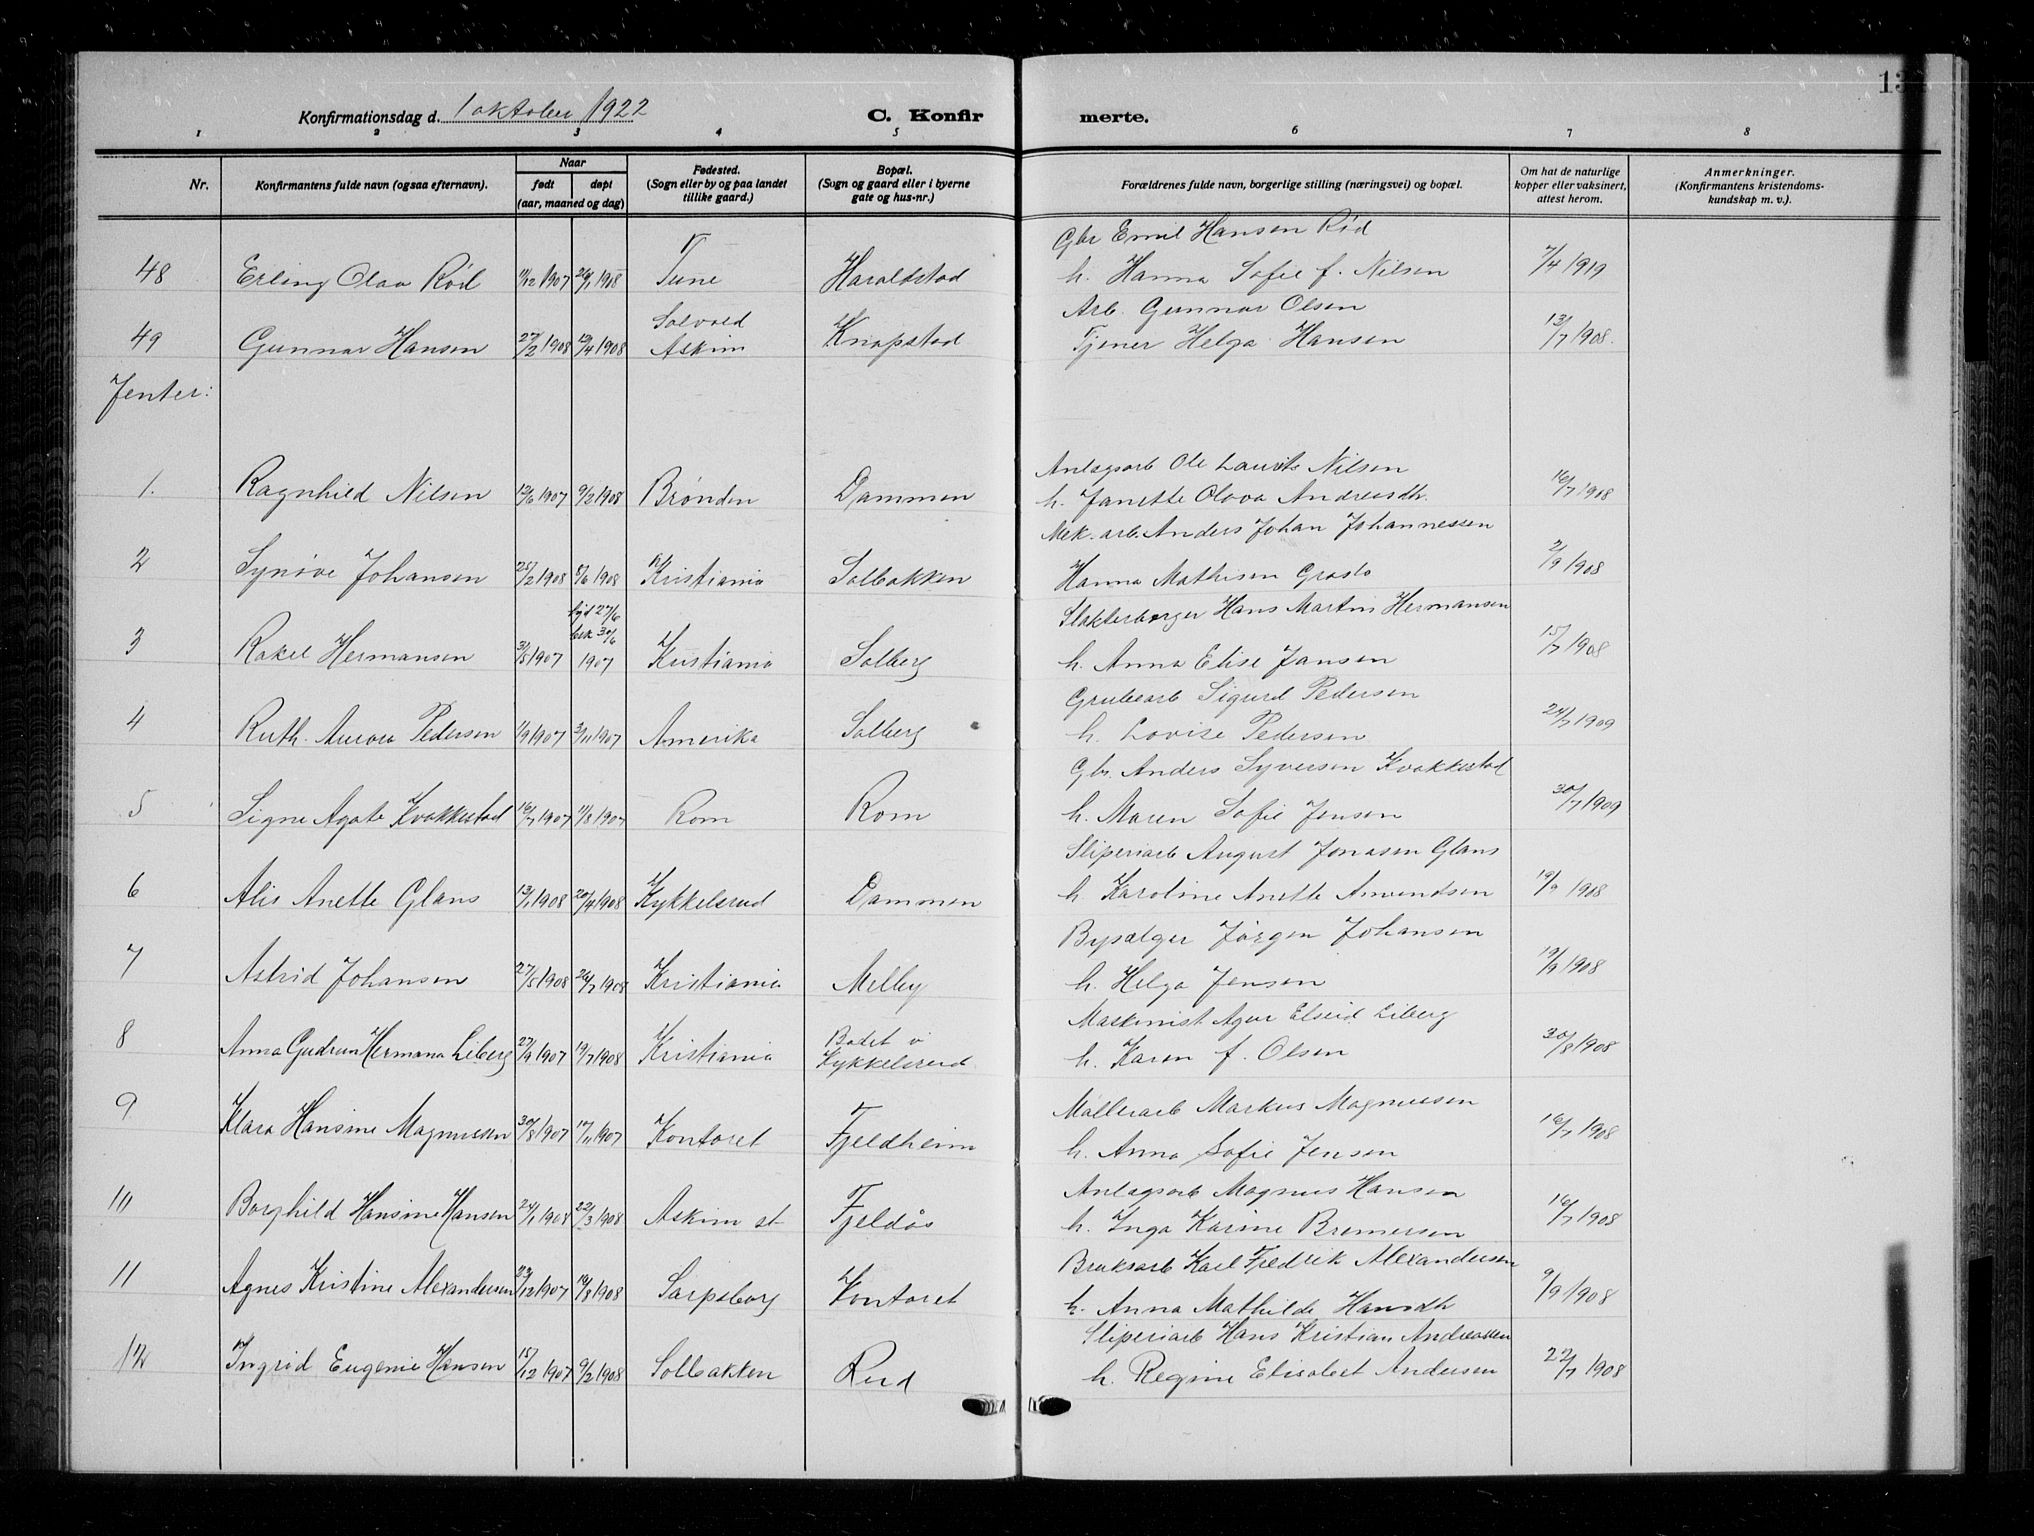 Konfirmationsdag d. 1 oktober 1922
C. Konfirmerte.
1 2 3 4 5 6 7 8
Nr.
Konfirmantens fulde navn (ogsaa efternavn).
Naar
født døpt
(aar, maaned og dag)
Fødested.
(Sogn eller by og paa landet
tillike gaard.)
Bopæl.
(Sogn og gaard eller i byerne
gate og hus-nr.)
Forældrenes fulde navn, borgerlige stilling (næringsvei) og bopæl.
Om hat de naturlige
kopper eller vaksinert,
attest herom.
Anmerkninger.
(Konfirmantens kristendoms-
kundskap m. v.).
Gbr Emil Hansen Rød
48 Erling Olav Rød 11/12 1907 26/1 1908 Tune Haraldstad h. Hanna Sofie f. Nilsen 7/4 1919
Solvold Arb. Gunnar Olsen
49 Gunnar Hansen 27/2 1908 19/4 1908 Askim Knapstad Tjener Helga Hansen 13/7 1908.
Jenter:
Anlagsarb Ole Laurits Nilsen
1. Ragnhild Nilsen 13/6 1907 9/2 1908 Brønden Dammen h. Janette Olava Andreasdh. 16/7 1908
Mek. arb. Anders Johan Johannessen
2 Synøve Johansen 25/2 1908 8/6 1908 Kristiania Solbakken Hanna Mathisen 2/9 1908
Slakterborger Hans Martin Hermansen
3 Rakel Hermansen 31/5 1907 27/6 30/6 1907 Kristiania Solberg h. Anna Elise Jansen 15/7 1908
Grubearb Sigurd Pedersen
4 Ruth Aurora Pedersen 1/9 1907 3/11 1907 Amerika Solberg h. Lovise Pedersen 24/7 1909
Gbr. Anders Syversen Kvakkestad
5 Signe Agate Kvakkestad 16/7 1907 11/8 1907 Rom Rom h. Maren Sofie Jensen 30/7 1909
Sliperiarb August Jonasen Glans
6 Alis Anette Glans 13/1 1908 20/4 1908 Kykkelsrud Dammen h Karoline Anette Amundsen 19/9 1908
Bypælger Jørgen Johansen
7 Astrid Johansen 27/5 1908 26/7 1908 Kristiania Melby h. Helga Jensen 19/9 1908
Maskinist Liberg
8 Anna Gudrun Hermana Liberg 27/9 1907 19/7 1908 Kristiania Badet v Kykkelsrud h. Karen f. Olsen 30/8 1908
Møllerarb Markus Magnussen
9 Klara Hansine Magnussen 30/8 1907 17/11 1907 Kontoret Fjeldheim h. Anna Sofie Jensen 16/7 1908
Anlagsarb Magnus Hansen
10 Borghild Hansine Hansen 24/1 1908 22/3 1908 Askim st Fjeldås h. Inga Karine Bremersen 16/7 1908
Bruksarb Karl Fredrik Alexandersen
11 Agnes Kristine Alexandersen 23/12 1907 16/8 1908 Sarpsborg Kontoret h. Anna Mathilde Hansdh 9/9 1908
Sliperiarb Hans Kristian Andreassen
12 Ingrid Eugenie Hansen 15/12 1907 9/2 1908 Solbakken Rud h. Regine Elisabet Andersen 22/7 1908